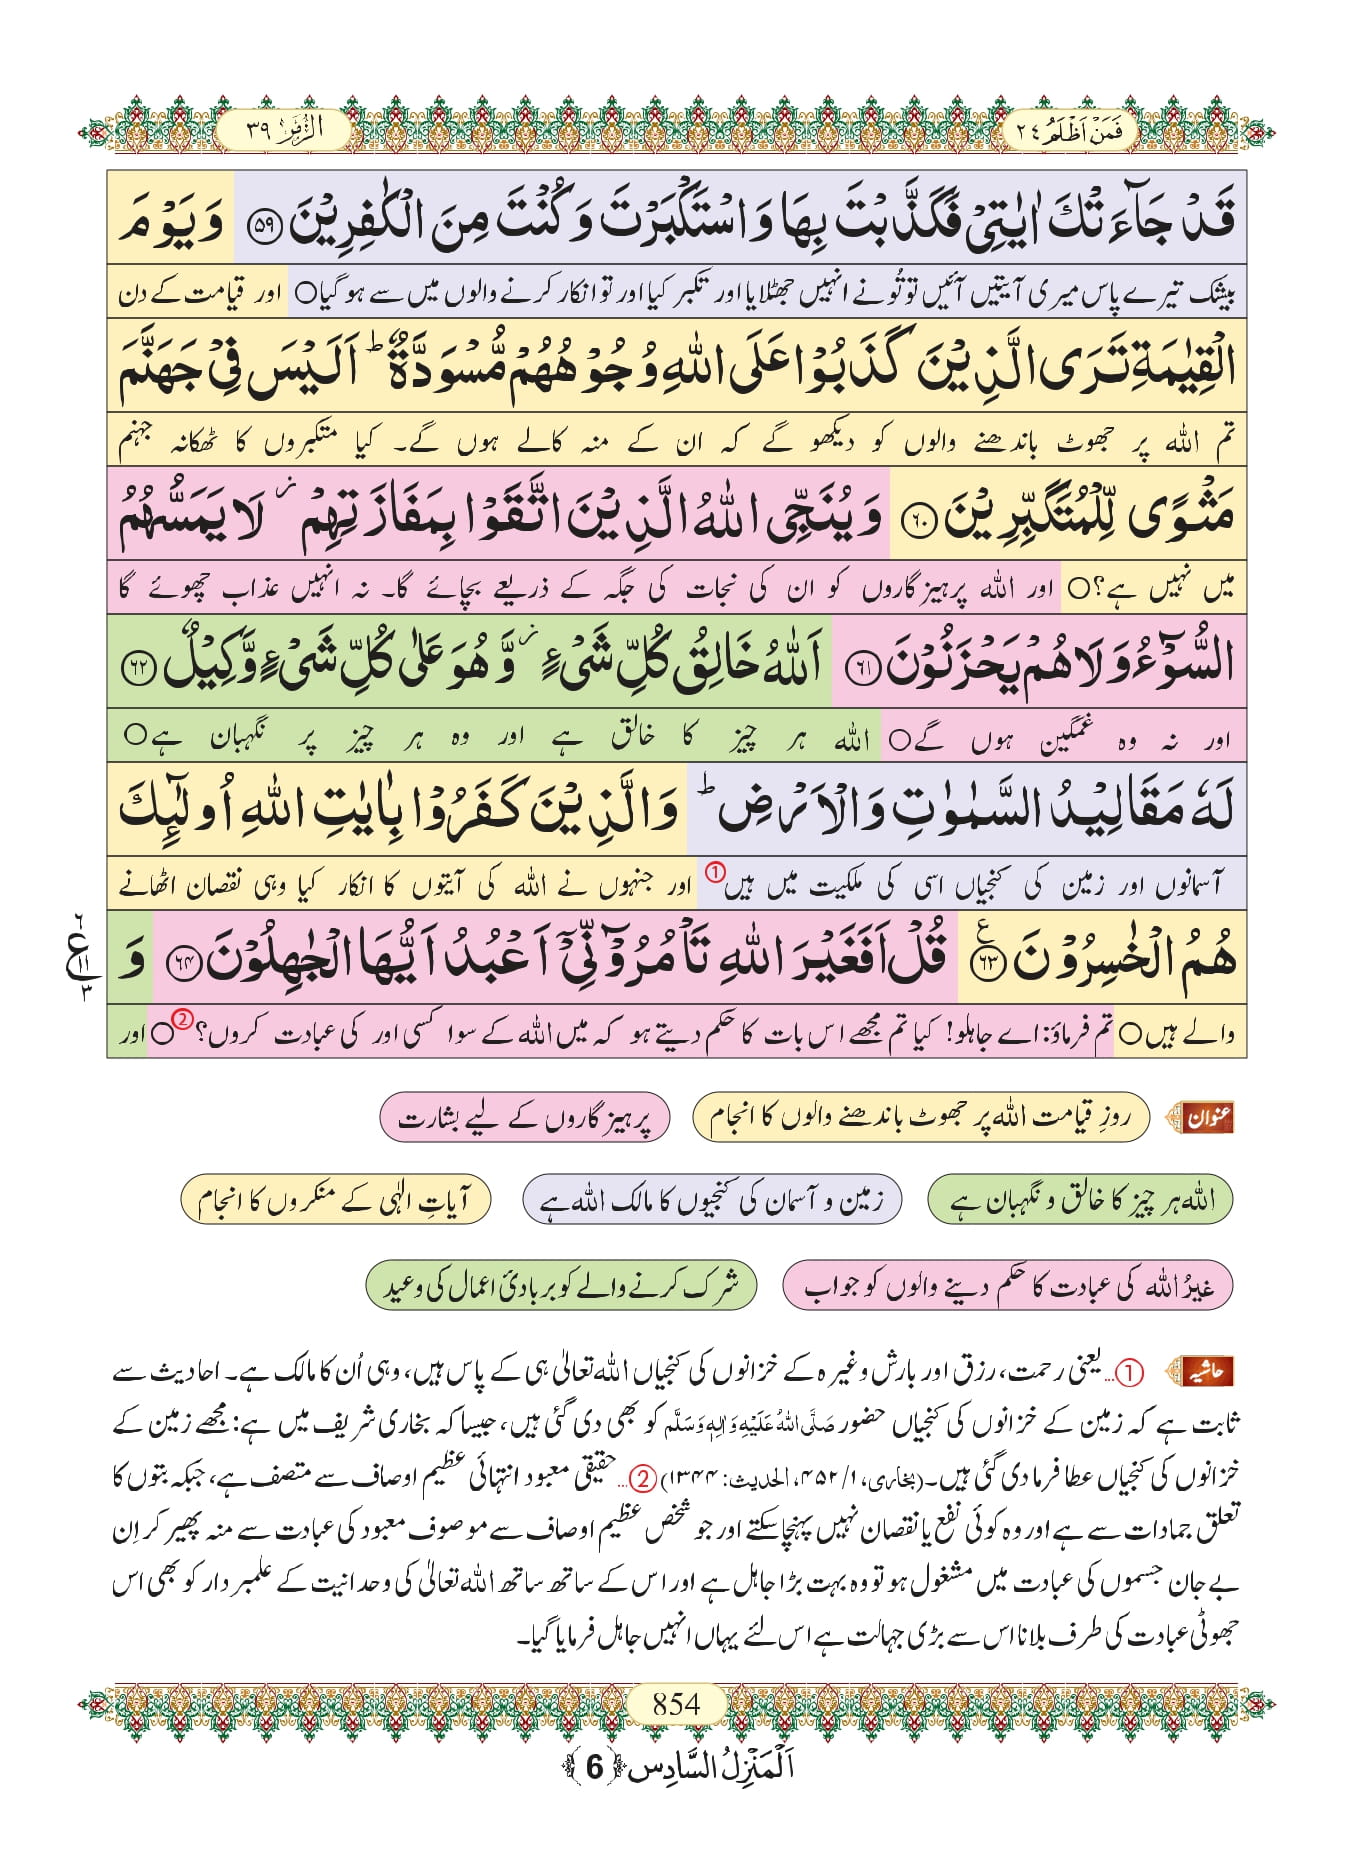 فَمَنْ اَظْلَمُ ٢٤
الزُّمَر ٣٩
قَدْ جَآءَتْكَ اٰیٰتِیْ فَكَذَّبْتَ بِهَا وَ اسْتَكْبَرْتَ وَ كُنْتَ مِنَ الْكٰفِرِیْنَ ﴿۵۹﴾ وَ یَوْمَ
بیشک تیرے پاس میری آیتیں آئیں تو تُو نے انہیں جھٹلایا اور تکبر کیا اور تو انکار کرنے والوں میں سے ہوگیا○ اور قیامت کے دن
الْقِیٰمَةِ تَرَى الَّذِیْنَ كَذَبُوْا عَلَى اللّٰهِ وُجُوْهُهُمْ مُّسْوَدَّةٌ ؕ اَلَیْسَ فِیْ جَهَنَّمَ
تم اللہ پر جھوٹ باندھنے والوں کو دیکھو گے کہ ان کے منہ کالے ہوں گے۔ کیا متکبروں کا ٹھکانہ جہنم
مَثْوًى لِّلْمُتَكَبِّرِیْنَ ﴿۶۰﴾ وَ یُنَجِّی اللّٰهُ الَّذِیْنَ اتَّقَوْا بِمَفَازَتِهِمْ ؗ لَا یَمَسُّهُمُ
میں نہیں ہے؟○ اور اللہ پرہیزگاروں کو ان کی نجات کی جگہ کے ذریعے بچائے گا۔ نہ انہیں عذاب چھوئے گا
السُّوْٓءُ وَ لَا هُمْ یَحْزَنُوْنَ ﴿۶۱﴾ اَللّٰهُ خَالِقُ كُلِّ شَیْءٍ ؗ وَّ هُوَ عَلٰى كُلِّ شَیْءٍ وَّكِیْلٌ ﴿۶۲﴾
اور نہ وہ غمگین ہوں گے○ اللہ ہر چیز کا خالق ہے اور وہ ہر چیز پر نگہبان ہے○
لَهٗ مَقَالِیْدُ السَّمٰوٰتِ وَ الْاَرْضِ ؕ وَ الَّذِیْنَ كَفَرُوْا بِاٰیٰتِ اللّٰهِ اُولٰٓىٕكَ
آسمانوں اور زمین کی کنجیاں اسی کی ملکیت میں ہیں① اور جنہوں نے اللہ کی آیتوں کا انکار کیا وہی نقصان اٹھانے
هُمُ الْخٰسِرُوْنَ ﴿۶۳﴾ ع قُلْ اَفَغَیْرَ اللّٰهِ تَاْمُرُوْٓنِّیْۤ اَعْبُدُ اَیُّهَا الْجٰهِلُوْنَ ﴿۶۴﴾ وَ
٦ ع ١١ ٣
والے ہیں○ تم فرماؤ: اے جاہلو! کیا تم مجھے اس بات کا حکم دیتے ہو کہ میں اللہ کے سوا کسی اور کی عبادت کروں؟②○ اور
عنوان روزِ قیامت اللہ پر جھوٹ باندھنے والوں کا انجام پرہیزگاروں کے لیے بشارت
اللہ ہر چیز کا خالق و نگہبان ہے زمین و آسمان کی کنجیوں کا مالک اللہ ہے آیاتِ الٰہی کے منکروں کا انجام
غیرُ اللہ کی عبادت کا حکم دینے والوں کو جواب شرک کرنے والے کو بربادیٔ اعمال کی وعید
حاشیہ ①...یعنی رحمت، رزق اور بارش وغیرہ کے خزانوں کی کنجیاں اللہ تعالیٰ ہی کے پاس ہیں، وہی اُن کا مالک ہے۔ احادیث سے
ثابت ہے کہ زمین کے خزانوں کی کنجیاں حضور صَلَّی اللہُ عَلَیْہِ وَاٰلِہٖ وَسَلَّم کو بھی دی گئی ہیں، جیسا کہ بخاری شریف میں ہے: مجھے زمین کے
خزانوں کی کنجیاں عطا فرما دی گئی ہیں۔(بخاری، ١/ ٤٥٢، الحدیث: ١٣٤٤) ②...حقیقی معبود انتہائی عظیم اوصاف سے متصف ہے، جبکہ بتوں کا
تعلق جمادات سے ہے اور وہ کوئی نفع یا نقصان نہیں پہنچا سکتے اور جو شخص عظیم اوصاف سے موصوف معبود کی عبادت سے منہ پھیر کر اِن
بے جان جسموں کی عبادت میں مشغول ہو تو وہ بہت بڑا جاہل ہے اور اس کے ساتھ ساتھ اللہ تعالیٰ کی وحدانیت کے علمبردار کو بھی اس
جھوٹی عبادت کی طرف بلانا اس سے بڑی جہالت ہے اس لئے یہاں انہیں جاہل فرمایا گیا۔
854
اَلْمَنْزِلُ السَّادِس ﴿6﴾